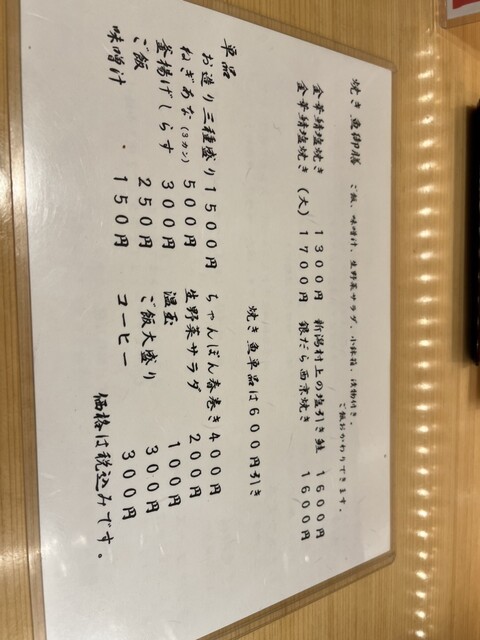 焼き魚御膳 ご飯、味噌汁、生野菜サラダ、小鉢、漬物付き。
ご飯おかわりできます。
金華鯖塩焼き 1300円 新潟村上の塩引き鮭 1600円
金華鯖塩焼き(大) 1700円 銀だら西京焼き 1600円
焼き魚単品は600円引き
単品
お造り三種盛り 1500円 ちゃんぽん春巻き 400円
ねぎあな(3カン) 500円 生野菜サラダ 200円
釜揚げしらす 300円 温玉 100円
ご飯 250円 ご飯大盛り 300円
味噌汁 150円 コーヒー 300円
価格は税込みです。